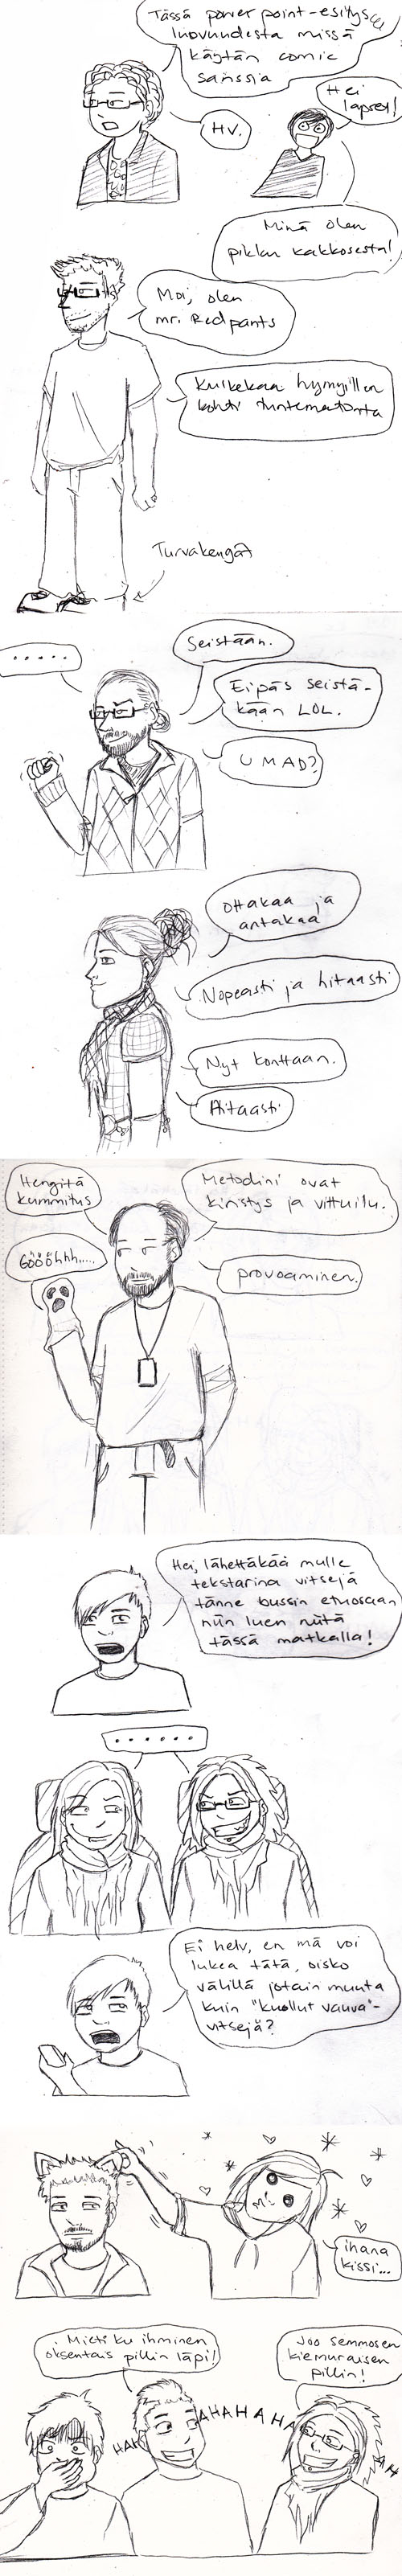 Tässä power point-esitys
luovuudesta missä
käytän comic
sanssia
Hei
lapset!
HV.
Minä olen
pikku kakkosesta!
Moi, olen
mr. Redpants
Kulkekaa hymyillen
kohti tuntematonta
Turvakengät
.....
Seistään.
Eipäs seistä-
kään LOL.
U MAD?
Ottakaa ja
antakaa
Nopeasti ja hitaasti
Nyt konttaan.
Hitaasti
Hengitä
kummitus
Metodini ovat
kiristys ja vittuilu.
Göööhhh....
provoaminen.
Hei, lähettäkää mulle
tekstarina vitsejä
tänne bussin etuosaan
niin luen niitä
tässä matkalla!
......
Ei helv, en mä voi
lukea tätä, oisko
välillä jotain muuta
kuin "kuollut vauva"-
vitsejä?
ihana
kissi...
Mieti ku ihminen
oksentais pillin läpi!
Joo semmosen
kiemuraisen
pillin!
HAHAHAHAHA